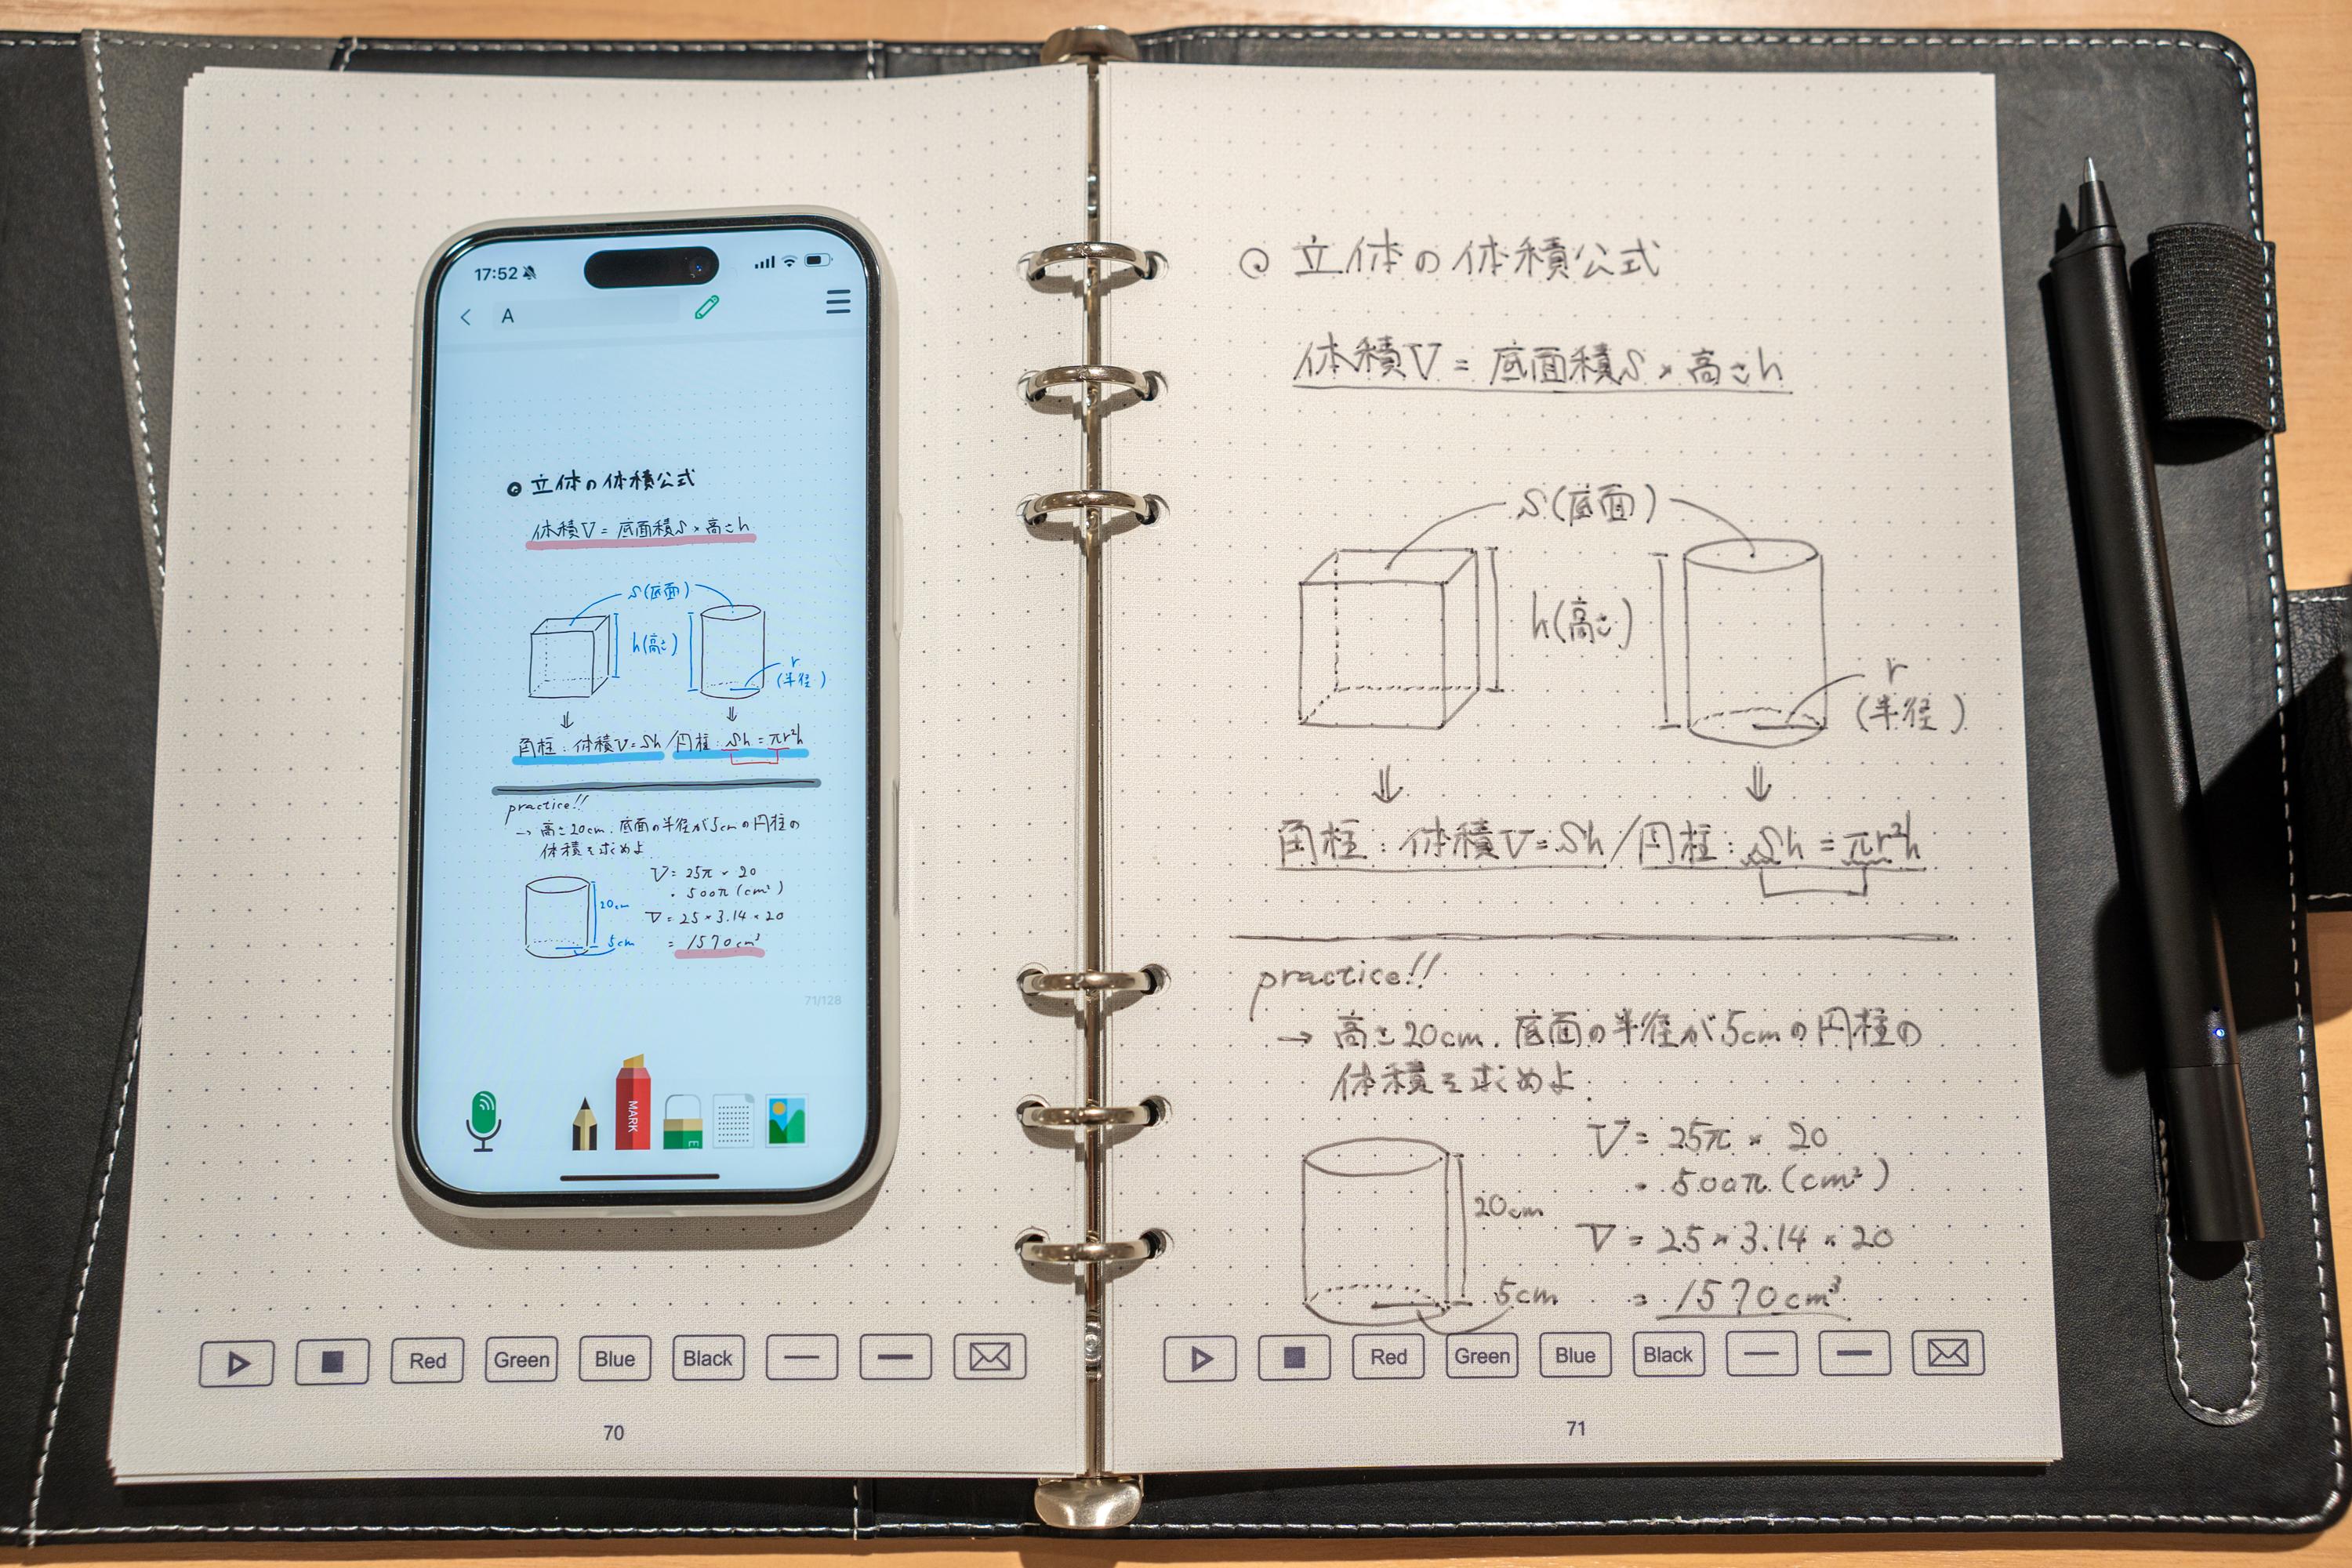 17:52
A
立体の体積公式
体積V = 底面積S × 高さh
S(底面)
h(高さ)
r
(半径)
角柱：体積V=Sh/円柱：Sh = πr²h
practice!!
→ 高さ20cm. 底面の半径が5cmの円柱の
体積を求めよ
V = 25π × 20
= 500π (cm²)
20cm
V = 25 × 3.14 × 20
5cm
= 1570cm³
71/128
MARK
E
Red Green Blue Black
70
立体の体積公式
体積V = 底面積S × 高さh
S(底面)
h(高さ)
r
(半径)
角柱：体積V=Sh/円柱：Sh = πr²h
practice!!
→ 高さ20cm. 底面の半径が5cmの円柱の
体積を求めよ.
V = 25π × 20
= 500π (cm²)
20cm
V = 25 × 3.14 × 20
5cm
= 1570cm³
Red Green Blue Black
71